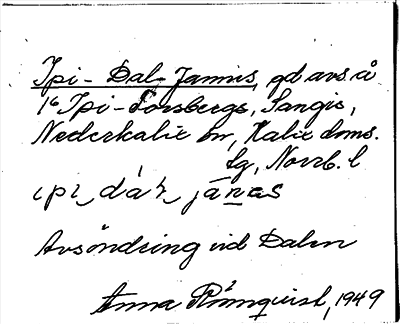 Ipi-Dal-Jannis, gd avs å
1⁶ Ipi-Forsbergs, Sangis,
Nederkalix sn, Kalix doms.
lg, Norrb. l
ipi dáλ jánas
Avsöndring vid Dalen
Anna Rönnqvist, 1949